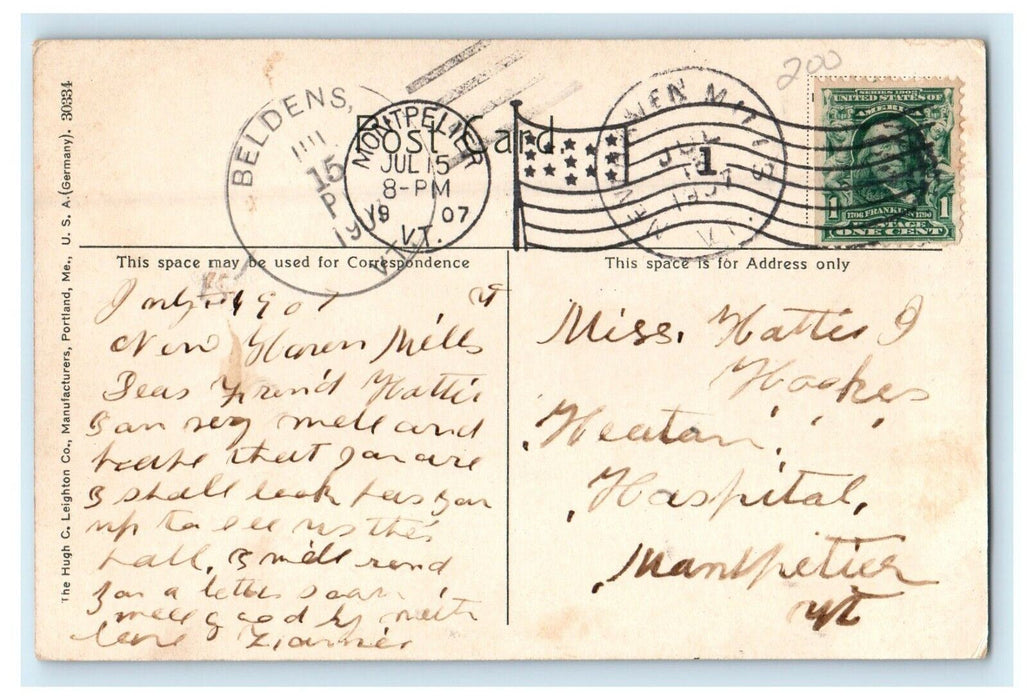 200
The Hugh C. Leighton Co., Manufacturers, Portland, Me., U. S. A. (Germany). 30334
Post Card.
BELDENS,
JUL
15
P
190
VT.
MONTPELIER
JUL 15
8-PM
19 07
VT.
1
NEW HAVEN MILLS
JUL
1907
VT.
SERIES 1902
UNITED STATES OF
AMERICA
1 1706 FRANKLIN 1790 1
POSTAGE
ONE CENT
This space may be used for Correspondence
This space is for Address only
July 1907 Vt
New Haven Mills
Dear Friend Hattie
I am very well and
hope that you are
I shall look for you
up to see us this
fall, I will send
you a letter soon
well good by with
love
Miss. Hattie J
Hookes
Heaton
Hospital,
Montpelier
Vt